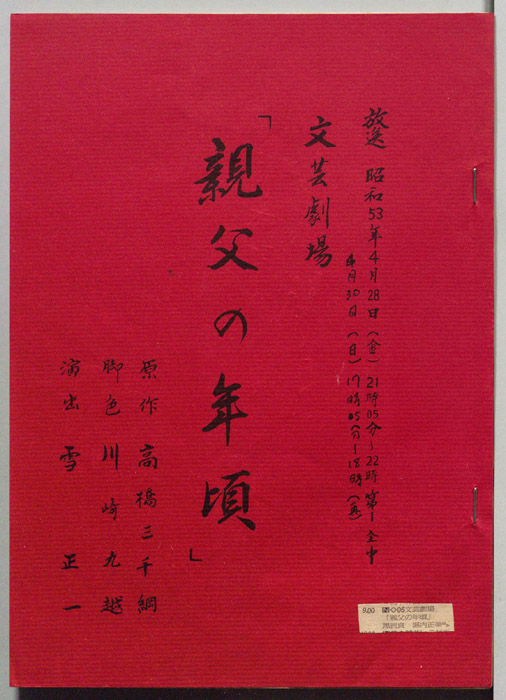 放送 昭和53年4月28日(金)21時05分~22時 第1 全中
4月30日(日)17時05(分)~18時(再)
文芸劇場
「親父の年頃」
原作 高橋三千綱
脚色 川崎九越
演出 雪 正一
9.00 05文芸劇場
「親父の年頃」